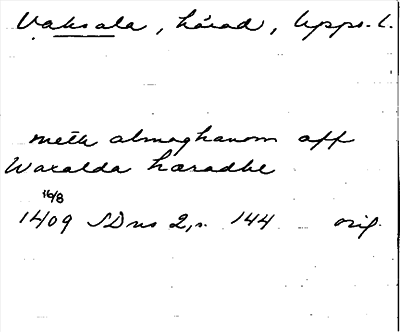 Vaksala, härad, Upps. l.
meth almoghanom aff
Waxalda hæradhe
16/8
1409 SDns 2, s. 144 orig.